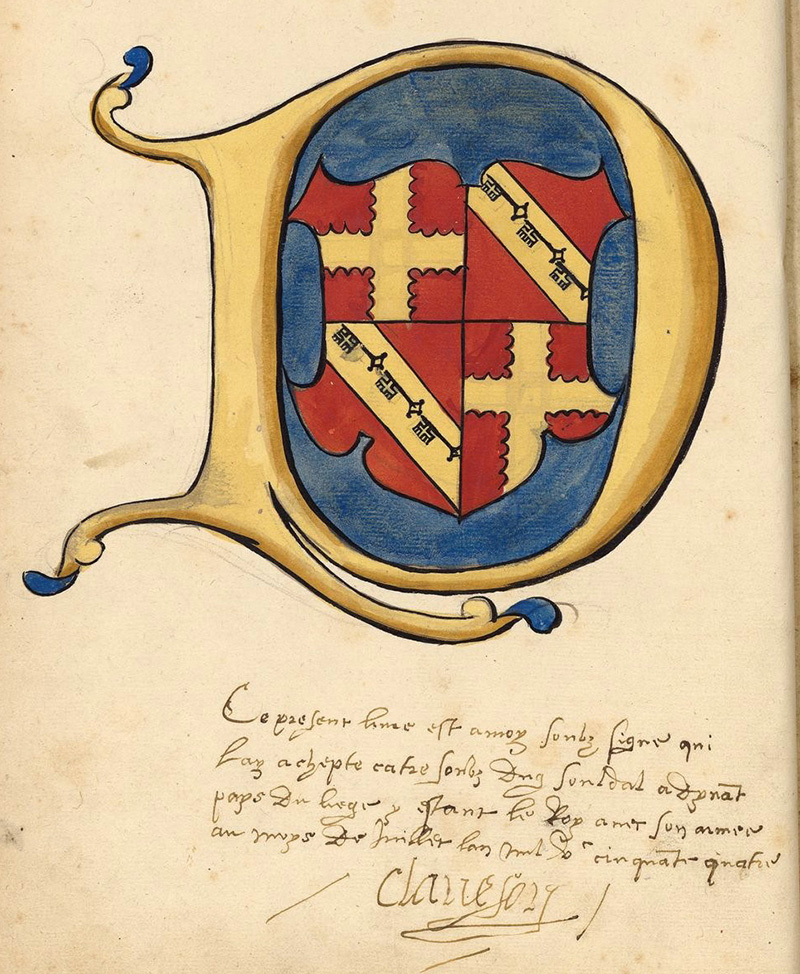 D
Ce present livre est a moy soubz signe qui
l'ay achepte catre soubz d'ung souldat a dynāt
pays du liege y estant le Roy avec son armee
au moys de Juillet l'an mil vᶜ cinquāte quatre
Claveson